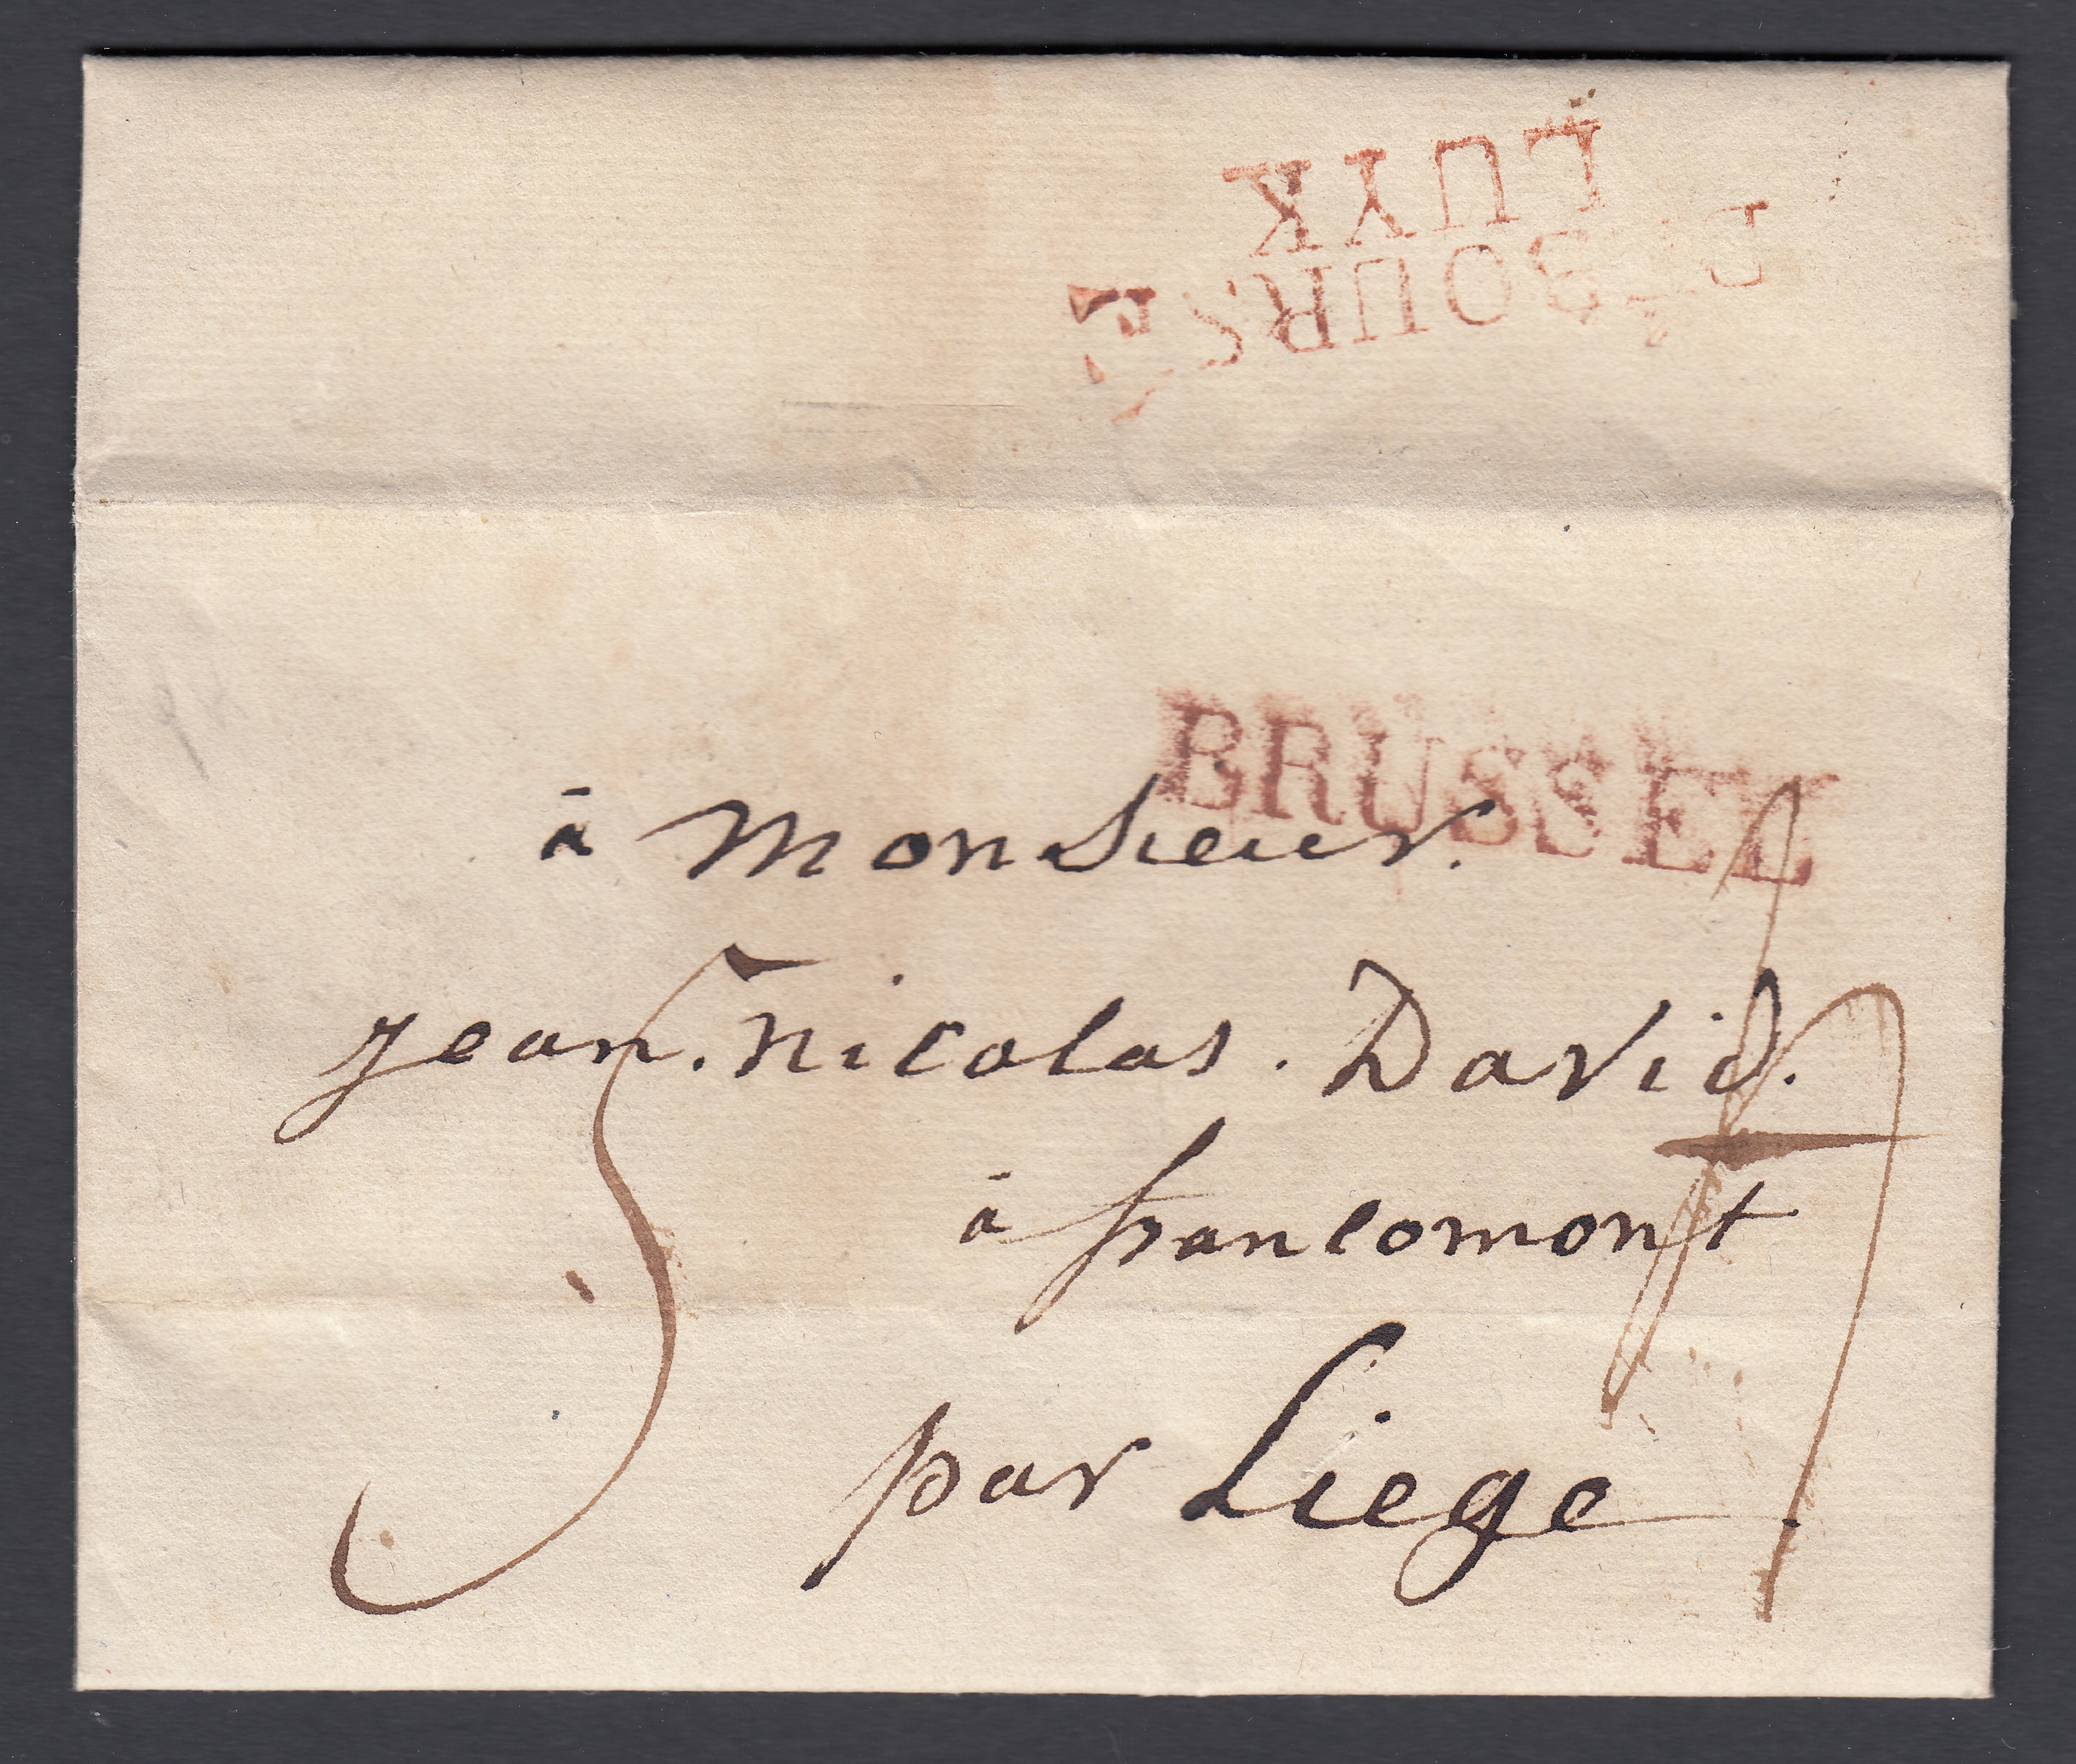 LUYK
DEBOURSÉ
BRUSSEL
à Monsieur.
jean. nicolas. David.
à francomont
par Liege
5